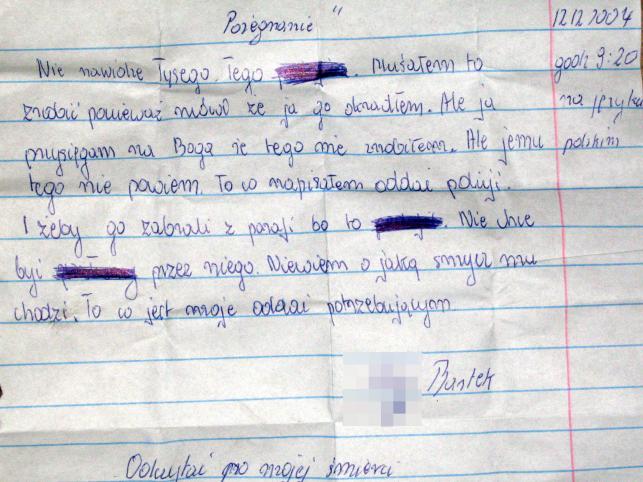 Pożegnanie" 12.12.2004
Nie nawidzę Łysego. Tego Musałem to godz 9:20
zrobić ponieważ mówił że ja go okradłem. Ale ja na języku
przysięgam na Boga że tego nie zrobiłem. Ale jemu polskim
tego nie powiem. To co napisałem oddai policji.
I żeby go zabrali z parafi bo to Nie chce
być przez niego. Niewiem o jaką smycz mu
chodzi. To co jest moje oddai potrzebującym.
Bartek
Odczytać po mojej śmierci